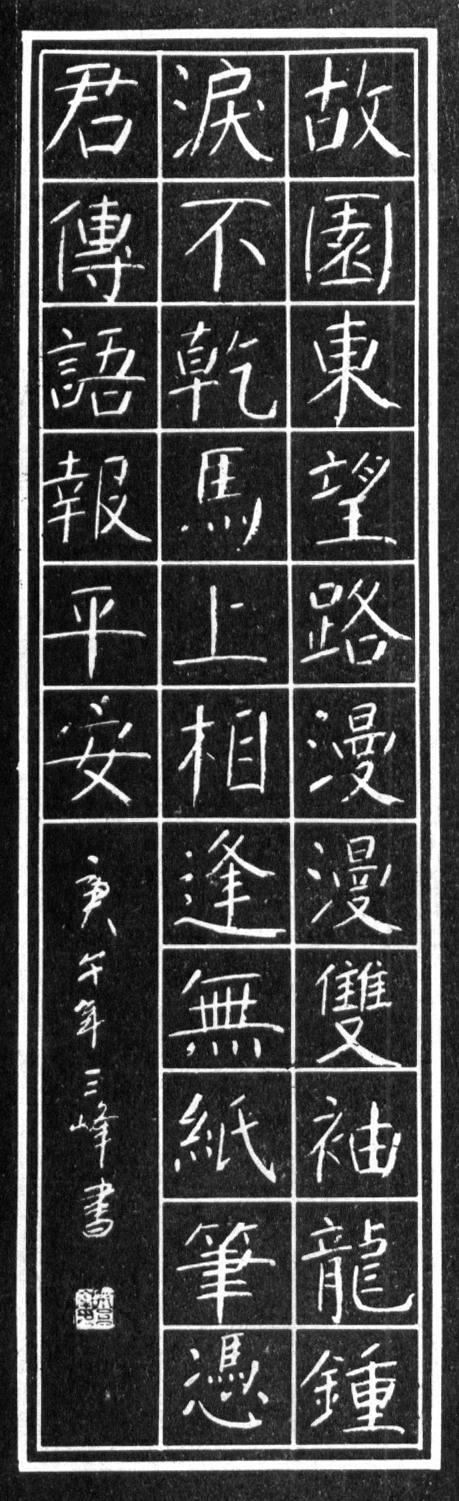 故園東望路漫漫雙袖龍鍾
淚不乾馬上相逢無紙筆憑
君傳語報平安
庚午年三峰書